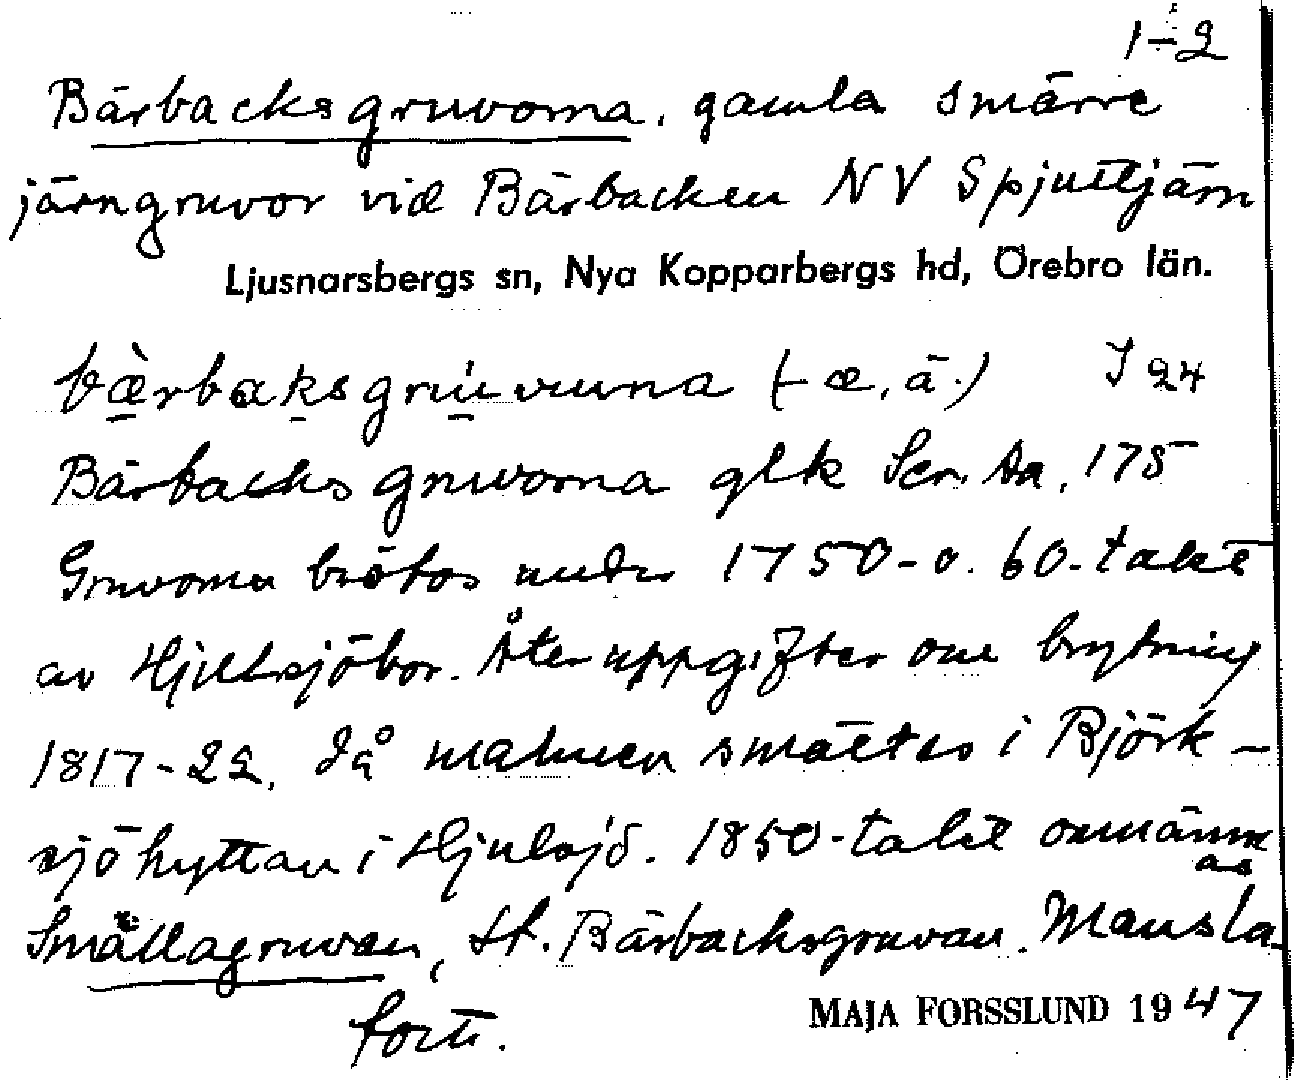 1-2
Bärbacksgruvorna, gamla smärre
järngruvor vid Bärbacken NV Spjuttjärn
Ljusnarsbergs sn, Nya Kopparbergs hd, Örebro län.
bæ̀rbaksgrúvuna (-æ, ä.) I 24
Bärbacksgruvorna glk Scr. Aa. 175
Gruvorna brötos under 1750-o. 60-talet
av Hjulsjöbor. Åter uppgifter om brytning
1817-22, då malmen smältes i Björk-
sjöhyttan i Hjulsjö. 1850-talet omnämnas
Smällagruvan, St. Bärbacksgruvan. Mansla-
forts.
MAJA FORSSLUND 1947